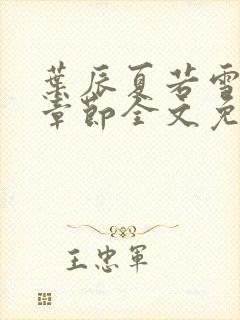 葉辰夏若雪
章節全文免
王忠軍